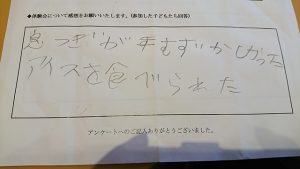 ◆体験会について感想をお願いいたします。(参加した子どもたち回答)
息つぎがむずかしかった
アイスを食べられた
アンケートへのご記入ありがとうございました。